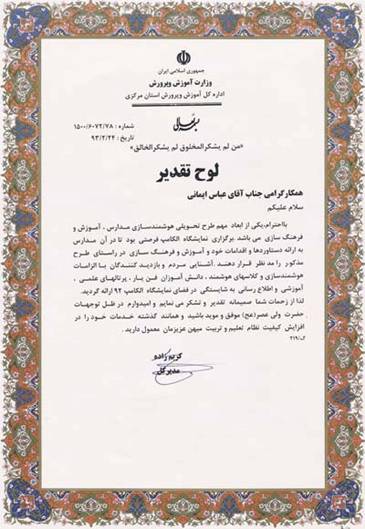 جمهوری اسلامی ایران
وزارت آموزش وپرورش
اداره کل آموزش وپرورش استان مرکزی
شماره : ۱۵۰۰/۶۰۷۲/۷۸
تاریخ : ۹۳/۲/۲۴
«من لم یشکرالمخلوق لم یشکرالخالق»
لوح تقدیر
همکارگرامی جناب آقای عباس ایمانی
سلام علیکم
بااحترام،یکی از ابعاد مهم طرح تحویلی هوشمندسازی مدارس ، آموزش و
فرهنگ سازی می باشد .برگزاری نمایشگاه الکامپ فرصتی بود تا در آن مدارس
به ارائه دستاوردها و اقدامات خود و آموزش و فرهنگ سازی در راستای طرح
مذکور را مد نظر قرار دهند. آشنایی مردم و بازدید کنندگان با الزامات
هوشمندسازی و کلاسهای هوشمند ، دانش آموزان فن یار ، پرتالهای علمی ،
آموزشی و اطلاع رسانی به شایستگی در فضای نمایشگاه الکامپ ۹۲ ارائه گردید.
لذا از زحمات شما صمیمانه تقدیر و تشکر می نمایم و امیدوارم در ظل توجهات
حضرت ولی عصر(عج) موفق و موید باشید و همانند گذشته خدمات خود را در
افزایش کیفیت نظام تعلیم و تربیت میهن عزیزمان معمول دارید .
ک/۲۱۹
کریم زاده
مدیرکل